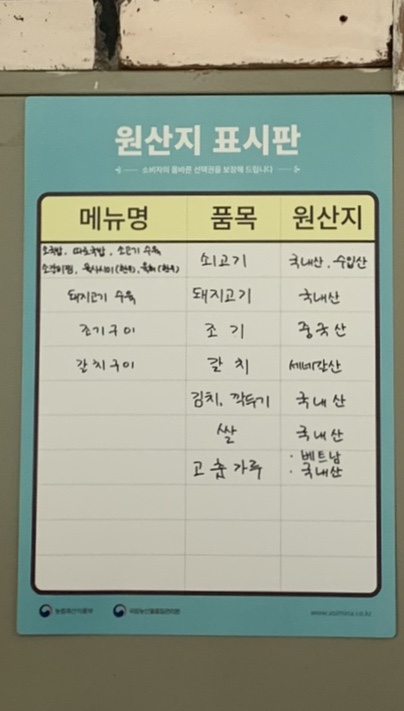 원산지 표시판
소비자의 올바른 선택권을 보장해 드립니다
메뉴명 품목 원산지
따로국밥, 소고기 수육 쇠고기 국내산, 수입산
육사시미(한우), 육회(한우)
돼지고기 수육 돼지고기 국내산
조기구이 조기 중국산
갈치구이 갈치 세네갈산
김치, 깍두기 국내산
쌀 국내산
고춧가루 · 베트남
· 국내산
농림축산식품부 국립농산물품질관리원